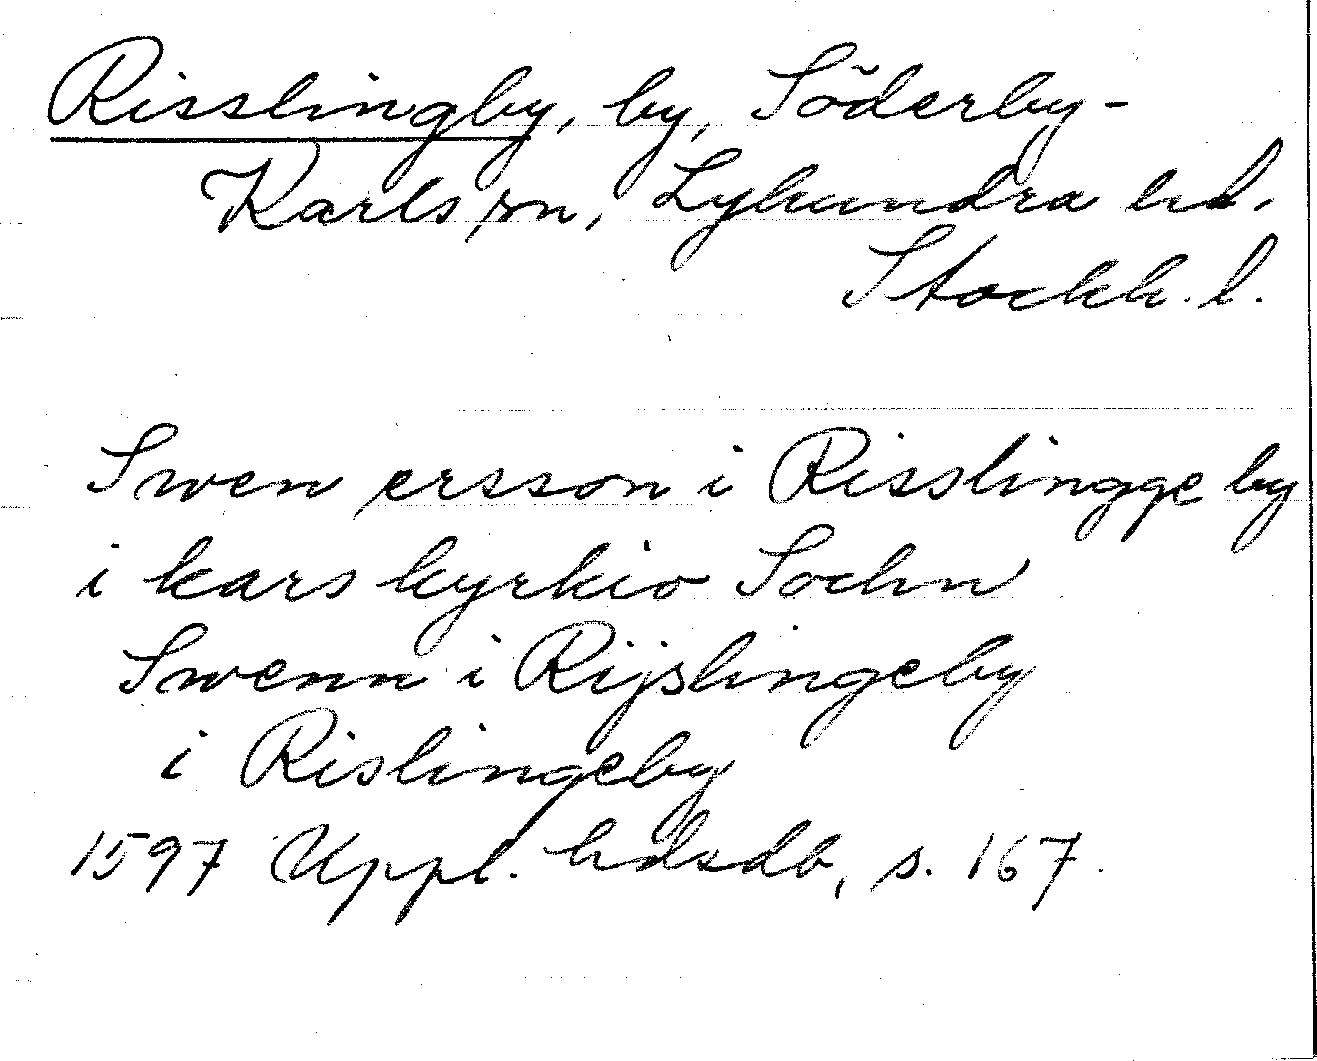 Risslingby, by, Söderby-
Karls sn, Lyhundra hd.
Stockh. l.
Swen persson i Risslingge by
i kars kyrkio Sochn
Swenn i Rijslingeby
i Rislingeby
1597 Uppl. hdsdb, s. 167.